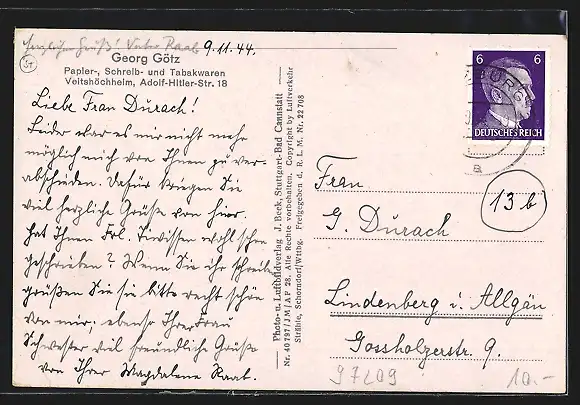 Herzlichen Gruß! Vater Raab
9.11.44.
Georg Götz
Papier-, Schreib- und Tabakwaren
Veitshöchheim, Adolf-Hitler-Str. 18
Liebe Frau Durach!
Leider war es mir nicht mehr
möglich mich von Ihnen zu ver-
abschieden. Dafür kriegen Sie
viel herzliche Grüße von hier.
Hat Ihnen Frl. wohl schon
geschrieben? Wenn Sie ihr schreiben
grüßen Sie sie bitte recht schön
von mir; ebenso Ihre Frau
Schwester viel freundliche Grüße
von Ihrer Magdalene Raab.
Photo- u. Luftbildverlag J. Beck, Stuttgart-Bad Cannstatt
Nr. 40797/JM/AP 28. Alle Rechte vorbehalten. Copyright by Luftverkehr
Strähle, Schorndorf/Wttbg. Freigegeben d. R. L. M. Nr. 22708
6 6
DEUTSCHES REICH
a
13b
Frau
G. Durach
Lindenberg i. Allgäu
Gossholzerstr. 9.
97209
10.-